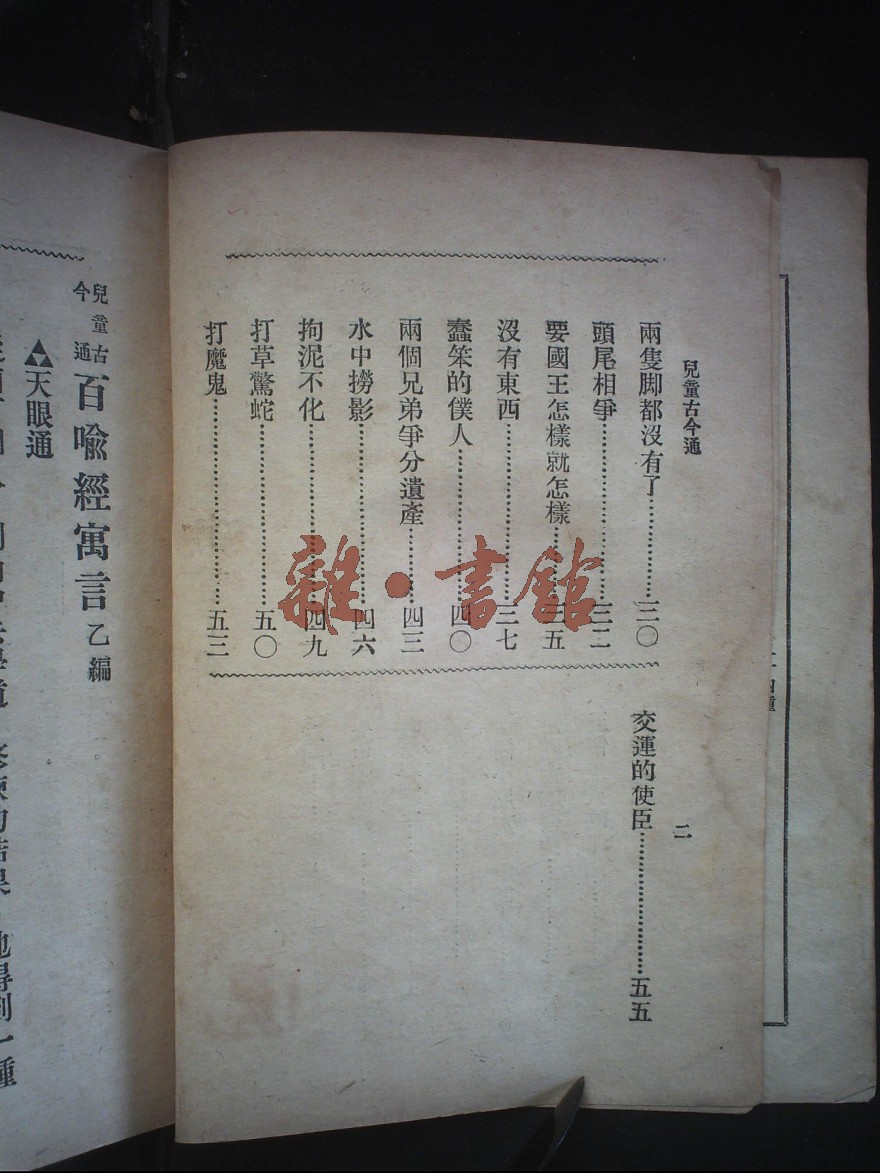 兒童古今通
兩隻脚都沒有了……三〇
頭尾相爭……三二
要國王怎樣就怎樣……三五
沒有東西……三七
蠢笨的僕人……四〇
兩個兄弟爭分遺產……四三
水中撈影……四六
拘泥不化……四九
打草驚蛇……五〇
打魔鬼……五三
交運的使臣……五五
二
兒童古今通 百喩經寓言 乙編
天眼通
雜·書館